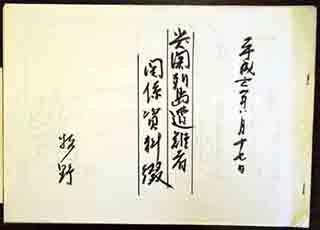 平成十二年八月十七日
尖閣列島遭難者
関係資料綴
牧野